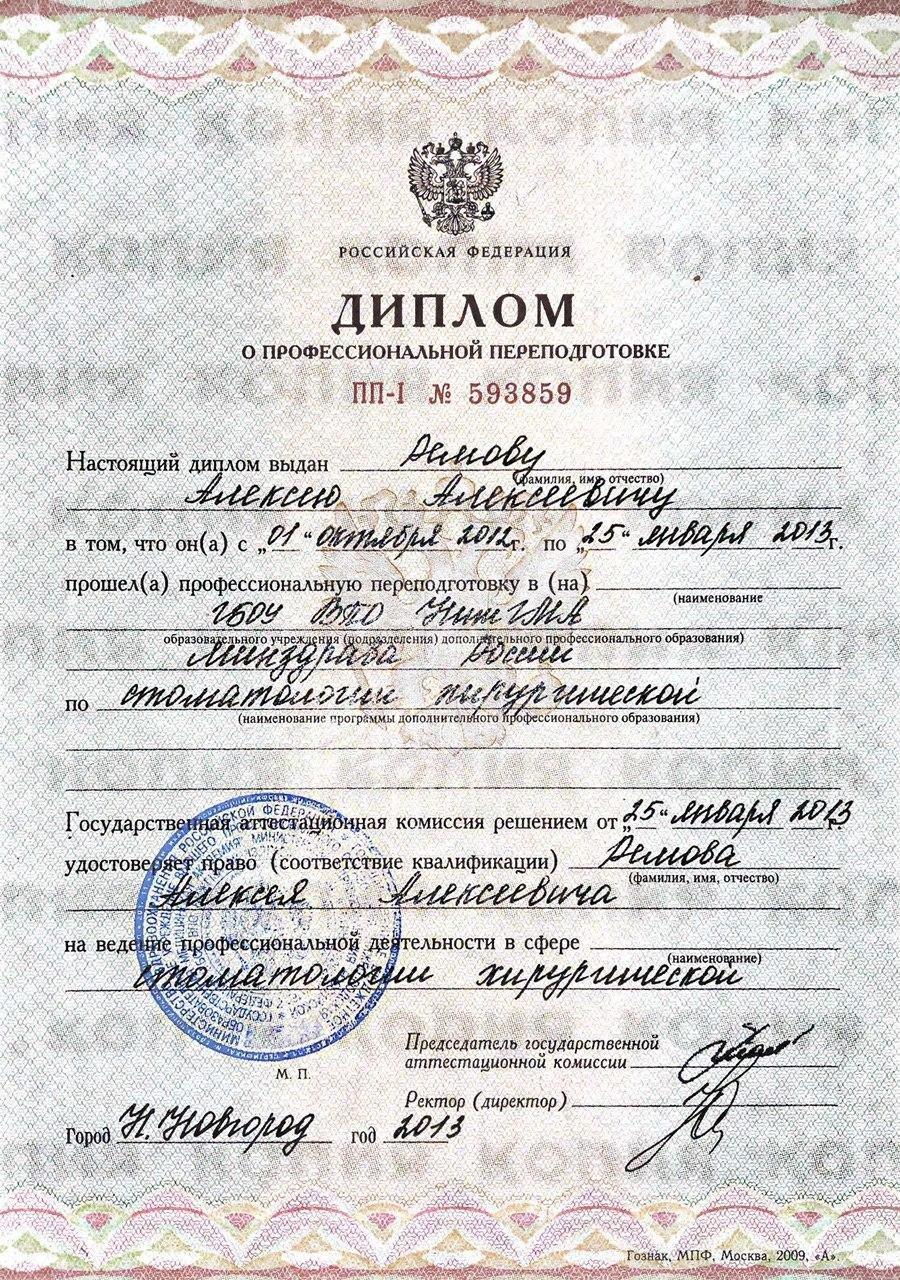 РОССИЙСКАЯ ФЕДЕРАЦИЯ
ДИПЛОМ
О ПРОФЕССИОНАЛЬНОЙ ПЕРЕПОДГОТОВКЕ
ПП-I № 593859
Настоящий диплом выдан Демову
(фамилия, имя, отчество)
Алексею Алексеевичу
в том, что он(а) с „01“ октября 2012г. по „25“ января 2013г.
прошел(а) профессиональную переподготовку в (на)
(наименование
ГБОУ ВПО НижГМА
образовательного учреждения (подразделения) дополнительного профессионального образования)
Минздрава России
по стоматологии хирургической
(наименование программы дополнительного профессионального образования)
Государственная аттестационная комиссия решением от „25“ января 2013г.
удостоверяет право (соответствие квалификации) Демова
(фамилия, имя, отчество)
Алексея Алексеевича
на ведение профессиональной деятельности в сфере
(наименование)
стоматологии хирургической
Председатель государственной
аттестационной комиссии
М. П.
Ректор (директор)
Город Н.Новгород год 2013
Гознак, МПФ, Москва, 2009, «А».